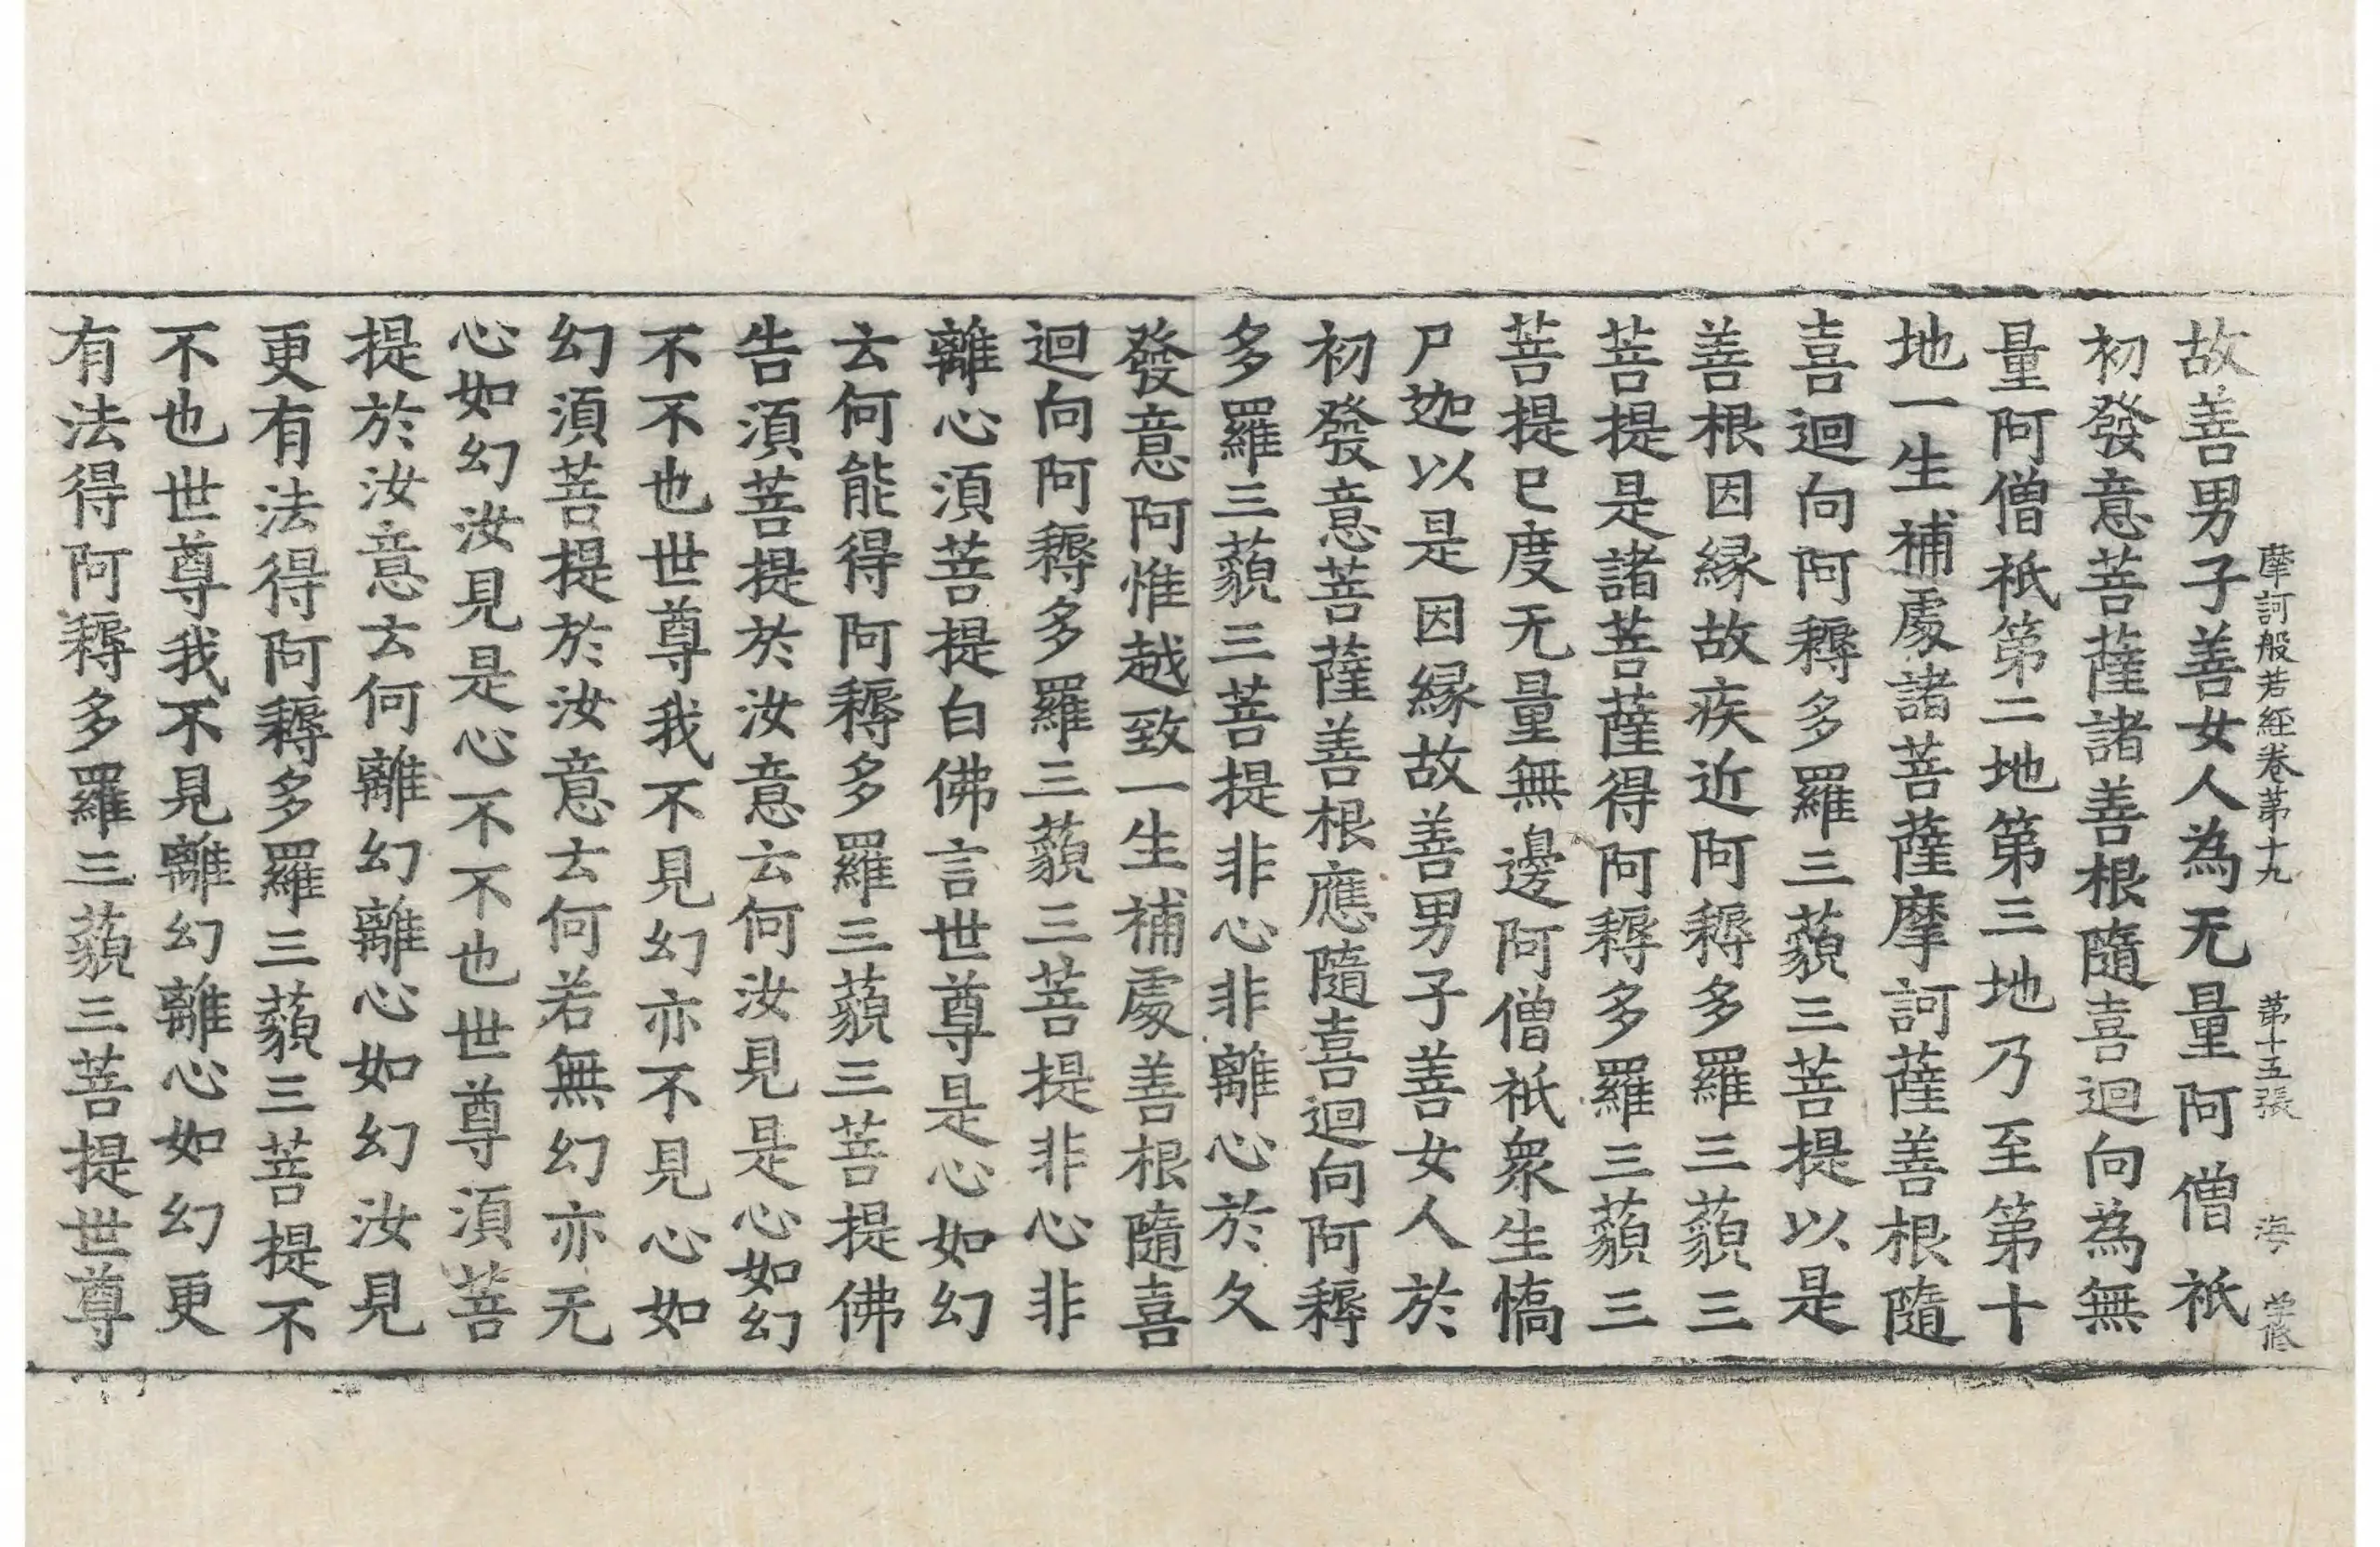 摩訶般若經卷苐十九　苐十五張　海　学修
故善男子善女人為无量阿僧祇
初發意菩薩諸善根隨喜迴向為無
量阿僧祇第二地第三地乃至第十
地一生補處諸菩薩摩訶薩善根隨
喜迴向阿耨多羅三藐三菩提以是
善根因縁故疾近阿耨多羅三藐三
菩提是諸菩薩得阿耨多羅三藐三
菩提已度无量無邊阿僧祇衆生憍
尸迦以是因縁故善男子善女人於
初發意菩薩善根應隨喜迴向阿耨
多羅三藐三菩提非心非離心於久
發意阿惟越致一生補處善根隨喜
迴向阿耨多羅三藐三菩提非心非
離心湏菩提白佛言世尊是心如幻
云何能得阿耨多羅三藐三菩提佛
告湏菩提於汝意云何汝見是心如幻
不不也世尊我不見幻亦不見心如
幻湏菩提於汝意云何若無幻亦无
心如幻汝見是心不不也世尊湏菩
提於汝意云何離幻離心如幻汝見
更有法得阿耨多羅三藐三菩提不
不也世尊我不見離幻離心如幻更
有法得阿耨多羅三藐三菩提世尊